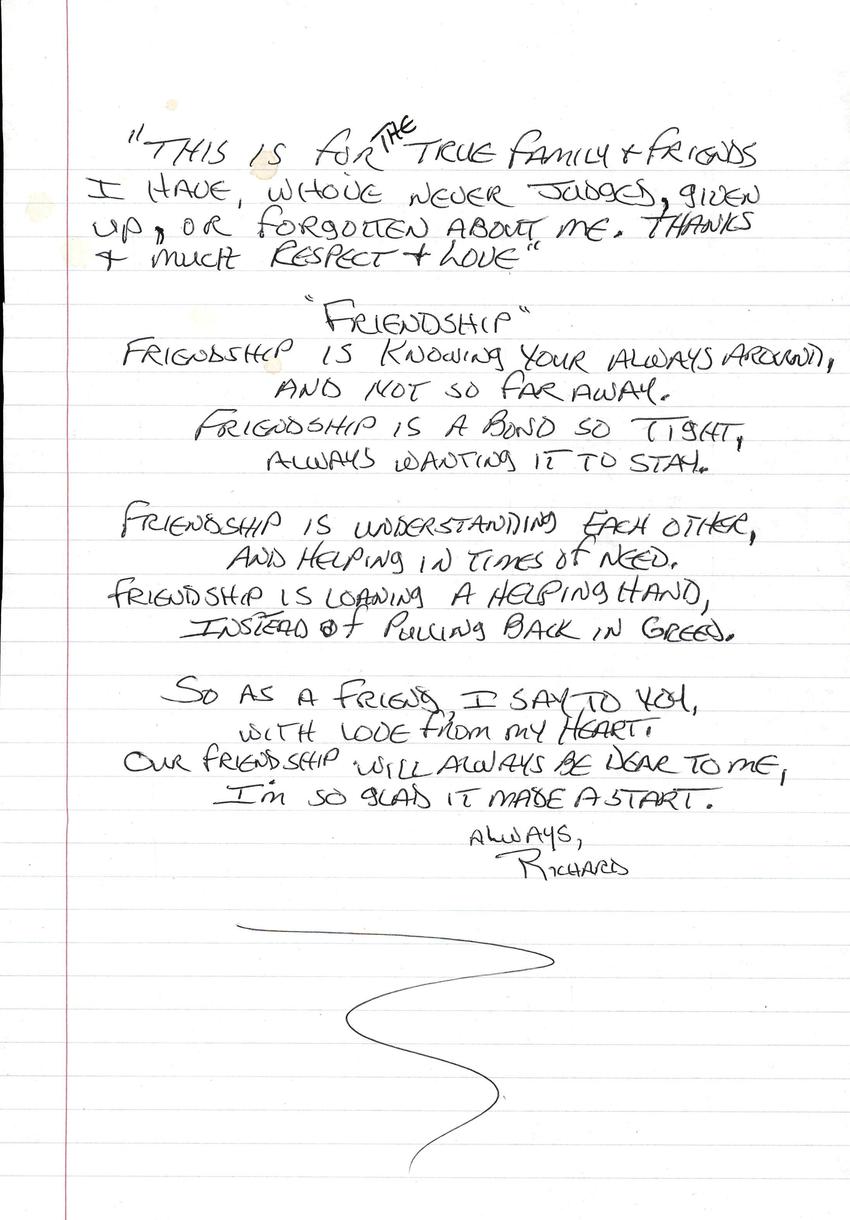 "THIS IS FOR THE TRUE FAMILY + FRIENDS
I HAVE, WHOVE NEVER JUDGED, GIVEN
UP, OR FORGOTTEN ABOUT ME. THANKS
+ MUCH RESPECT + LOVE"
"FRIENDSHIP"
FRIENDSHIP IS KNOWING YOUR ALWAYS AROUND,
AND NOT SO FAR AWAY.
FRIENDSHIP IS A BOND SO TIGHT,
ALWAYS WANTING IT TO STAY.
FRIENDSHIP IS UNDERSTANDING EACH OTHER,
AND HELPING IN TIMES OF NEED.
FRIENDSHIP IS LOANING A HELPING HAND,
INSTEAD OF PULLING BACK IN GREED.
SO AS A FRIEND, I SAY TO YOU,
WITH LOVE FROM MY HEART.
OUR FRIENDSHIP WILL ALWAYS BE DEAR TO ME,
I'M SO GLAD IT MADE A START.
ALWAYS,
RICHARD